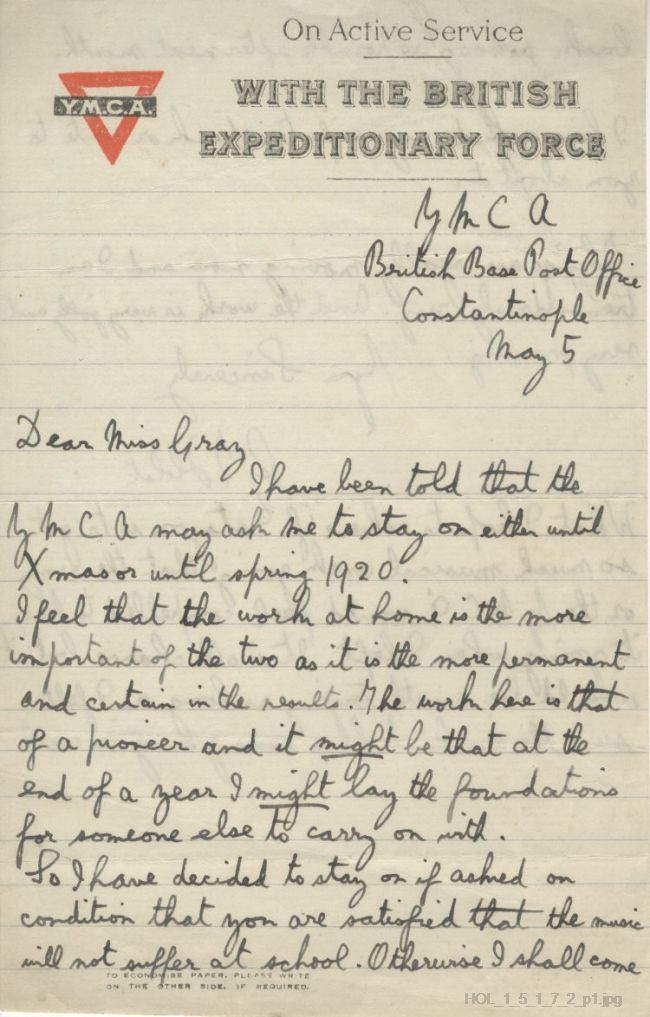 On Active Service
Y.M.C.A.
WITH THE BRITISH
EXPEDITIONARY FORCE
Y M C A
British Base Post Office
Constantinople
May 5
Dear Miss Gray
I have been told that the
Y M C A may ask me to stay on either until
Xmas or until spring 1920.
I feel that the work at home is the more
important of the two as it is the more permanent
and certain in the results. The work here is that
of a pioneer and it might be that at the
end of a year I might lay the foundations
for someone else to carry on with.
So I have decided to stay on if asked on
condition that you are satisfied that the music
will not suffer at school. Otherwise I shall come
TO ECONOMISE PAPER, PLEASE WRITE
ON THE OTHER SIDE, IF REQUIRED.
HOL_1_5_1_7_2_p1.jpg